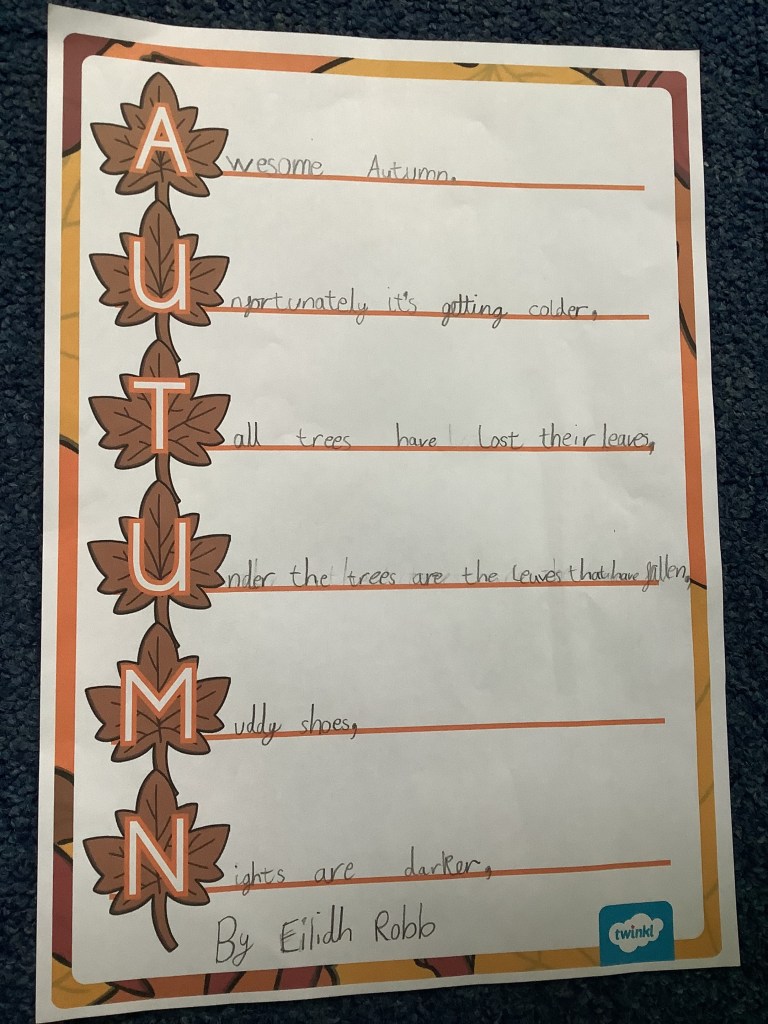 Awesome Autumn.
Unfortunately it's getting colder,
Tall trees have lost their leaves,
Under the trees are the leaves that have fallen,
Muddy shoes,
Nights are darker,
By Eilidh Robb
twinkl